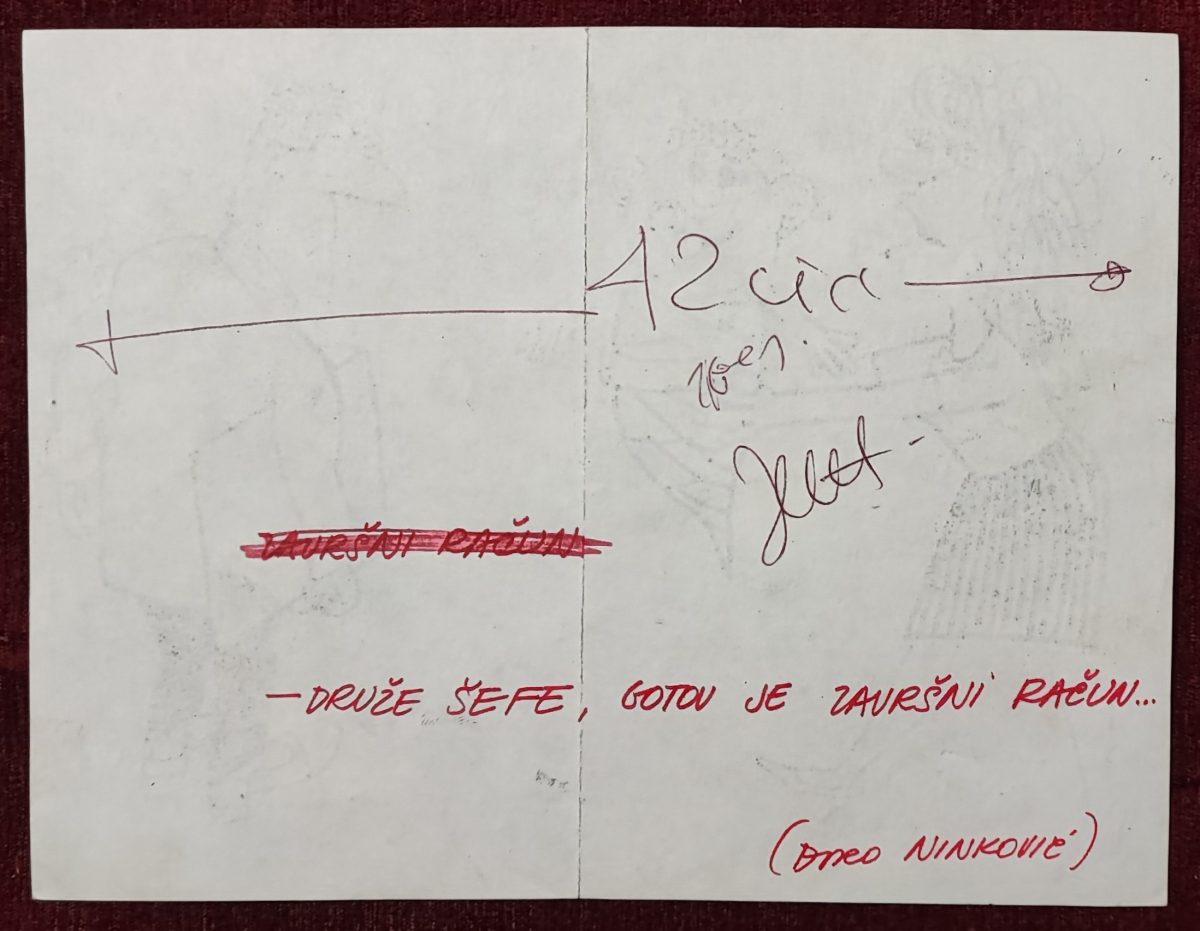 42 cic
ZAVRŠNI RAČUN
—DRUŽE ŠEFE, GOTOV JE ZAVRŠNI RAČUN...
NINKOVIĆ)